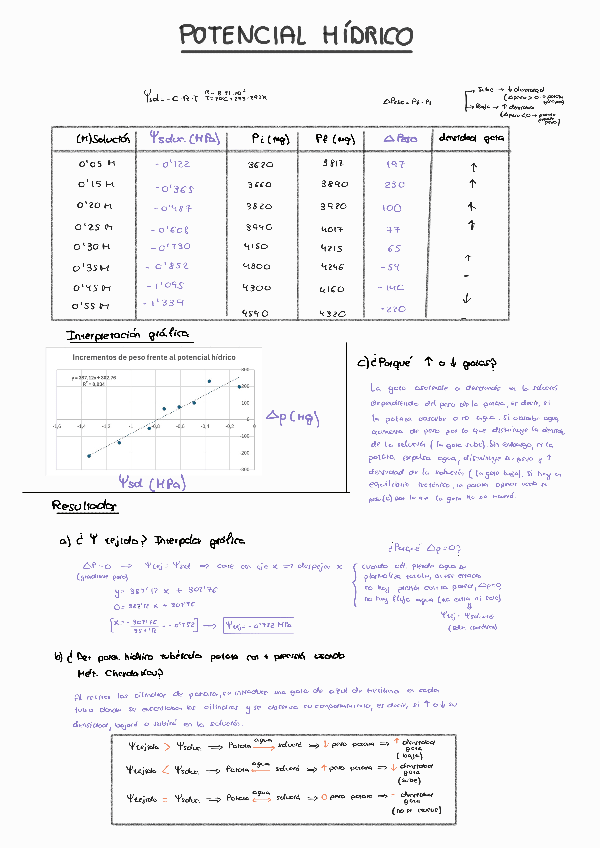 POTENCIAL HÍDRICO
Ψsol = -C·R·T
ΔPeso = Pf - Pi
Sube → ↓ densidad
Baja → ↑ densidad
(M) Solución Ψsoluc. (MPa) Pi (mg) Pf (mg) ΔPeso densidad gota
0'05 M -0'122 3620 3817 197 ↑
0'15 M -0'365 3660 3890 230 ↑
0'20 M -0'487 3820 3920 100 ↑
0'25 M -0'608 3940 4017 77 ↑
0'30 M -0'730 4150 4215 65 ↑
0'35 M -0'852 4300 4246 -54 -
0'45 M -1'095 4300 4160 -140 ↓
0'55 M -1'339 4540 4320 -220
Interpretación gráfica
Incrementos de peso frente al potencial hídrico
y = 387,12x + 302,76
-1,6 -1,4 -1,2 -1 -0,8 -0,6 -0,4 -0,2 0
300
200
100
0
-100
-200
-300
Δp (mg)
Ψsol (MPa)
c) ¿Porqué ↑ o ↓ gotas?
La gota asciende o desciende en la solución
dependiendo del peso de la patata, es decir, si
la patata absorbe o no agua. Si absorbe agua
aumenta de peso por lo que disminuye la densidad
de la solución (la gota sube). Sin embargo, si la
patata expulsa agua, disminuye su peso y ↑
densidad de la solución (la gota baja). Si hay un
equilibrio la patata
peso por lo que la gota no se mueve.
Resultados
a) ¿Ψ tejido? Interpolar gráfica
¿Porqué Δp=0?
ΔP=0 → Ψtej = Ψsol → corte con eje x → despejar x
y = 387'12 x + 302'76
0 = 387'12 x + 302'76
→ Ψtej = -0'782 MPa
cuando cél pierde agua
no hay flujo agua (no entra ni sale)
Ψtej = Ψsoluto
b) ¿Det poten. hídrico tubérculo patata con + precisión usando
Mét. Chardakou?
Al retirar los cilindros de patata, se introduce una gota de azul de metileno en cada
tubo donde se encontraban los cilindros y se observa su comportamiento, es decir, si ↑ o ↓ su
densidad, bajará o subirá en la solución.
Ψtejido > Ψsoluc. → Patata agua → solución → ↓ peso patata → ↑ densidad gota (baja)
Ψtejido < Ψsoluc. → Patata agua ← solución → ↑ peso patata → ↓ densidad gota (sube)
Ψtejido = Ψsoluc. → Patata agua ↔ solución → 0 peso patata → - densidad gota (no se mueve)